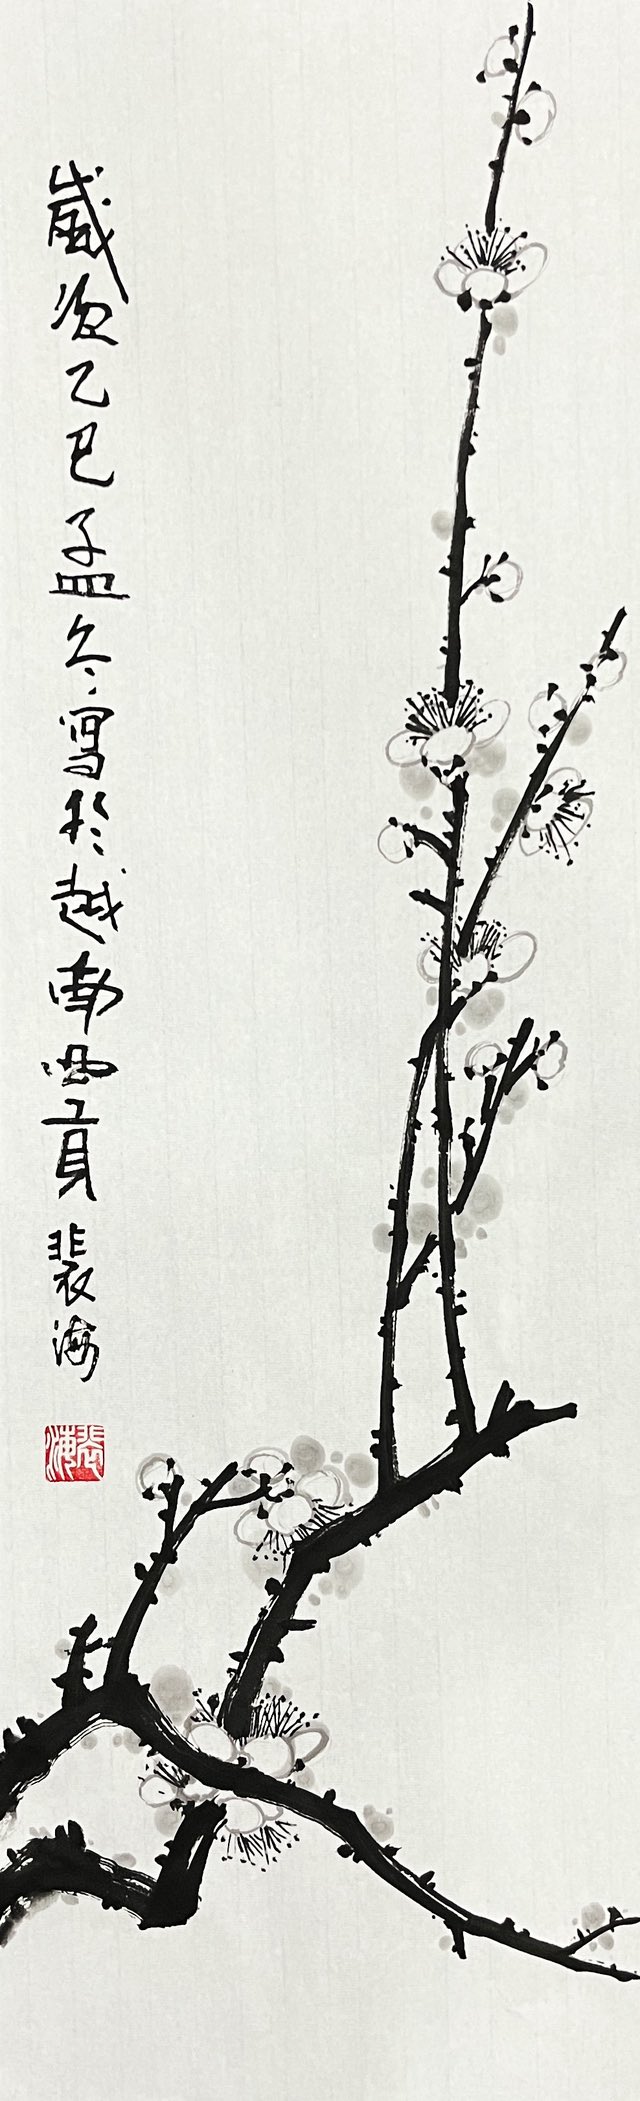 歲次乙巳孟冬寫於越南西貢裴海
裴海